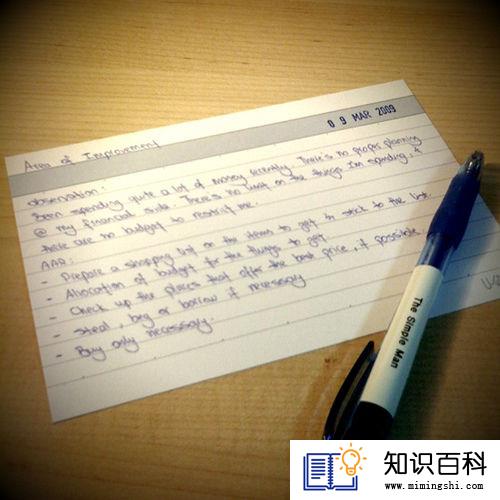 0 9 MAR 2009
Area of Improvement
Observation:
Been spending quite a lot of money recently. There's no proper planning
@ my financial side. There's no limit on the things I'm spending, &
there are no budget to restrict me.
AAR:
- Prepare a shopping list on the items to get & stick to the list.
- Allocation of budget for the things to get
- Check up the places that offer the best price, if possible.
- Steal, beg or borrow if necessary
- Buy only necessary.
The Simple Man
知识百科
www.mimingshi.com